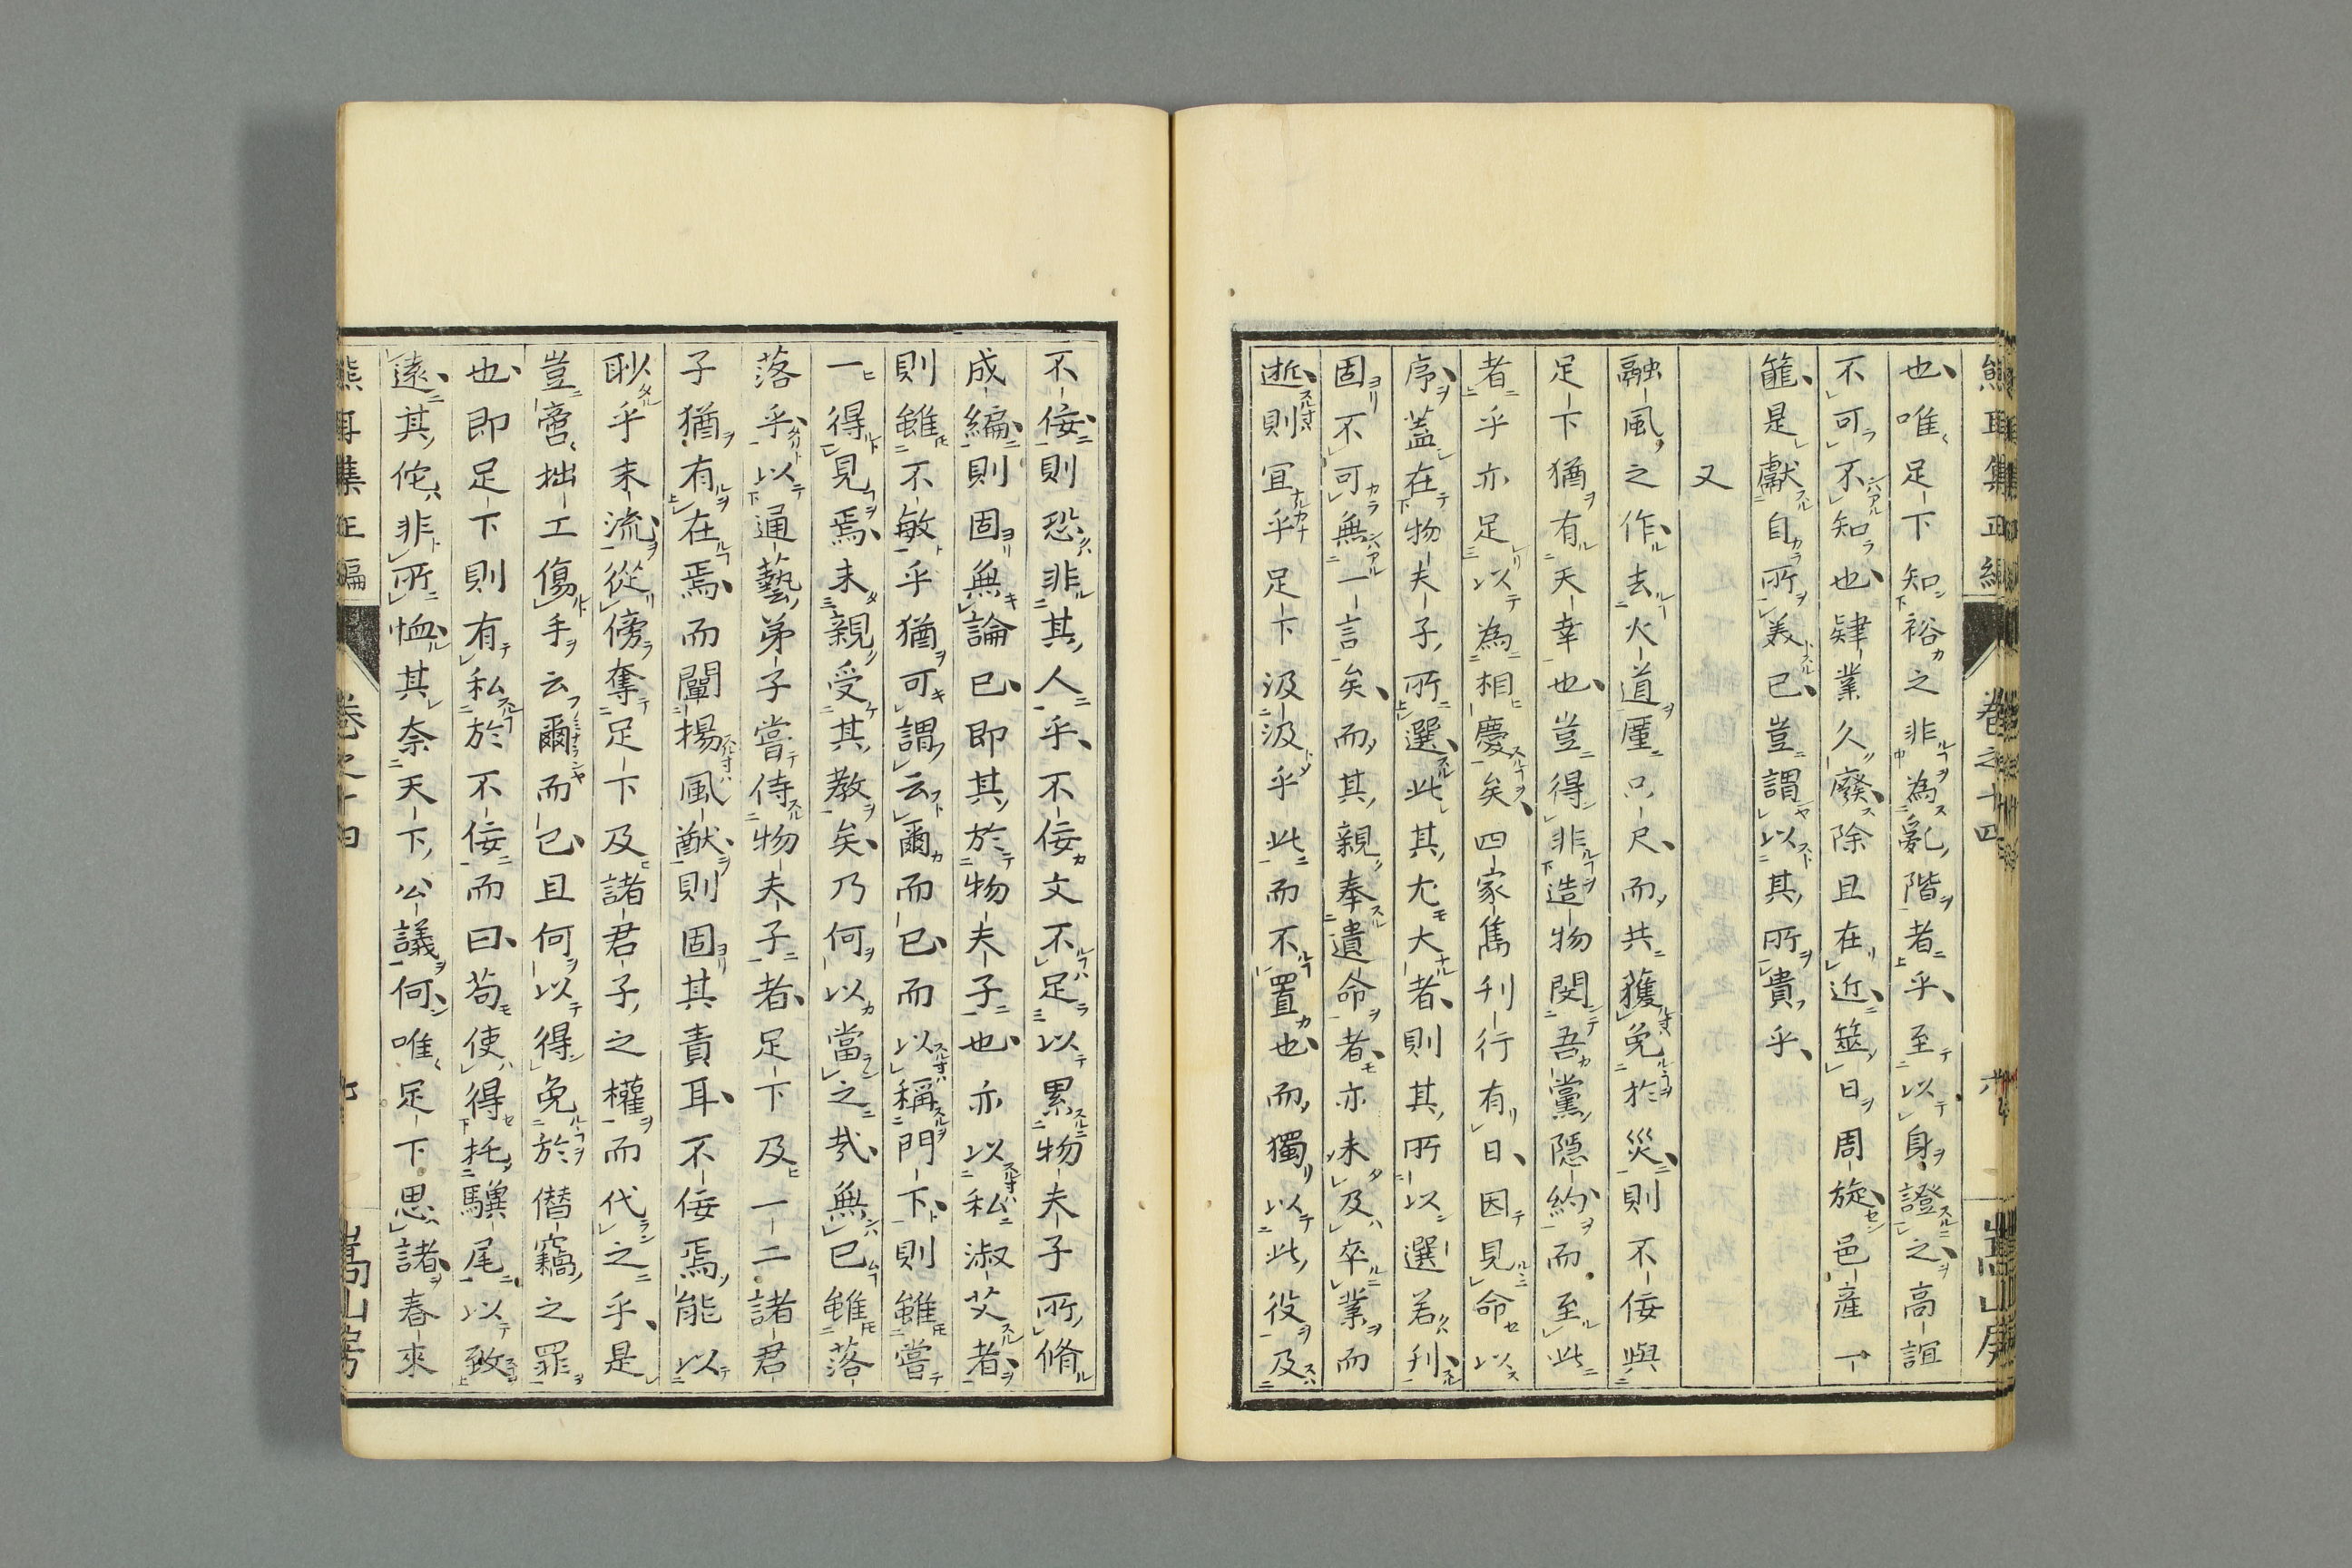 熊耳集正編 卷之十四 六 嵩山房
也唯足下知裕之非為亂階者乎至以身證之高誼
不可不知也肄業久廢除且在近筮日周旋邑産一
簏是獻自所美已豈謂以其所貴乎
又
融風之作去火道厪咫尺而共獲免於災則不佞與
足下猶有天幸也豈得非造物閔吾黨隱約而至此
者乎亦足以為相慶矣四家雋刊行有日因見命以
序蓋在物夫子所選此其尤大者則其所以選若刊
固不可無一言矣而其親奉遺命者亦未及卒業而
逝則宜乎足下汲汲乎此而不置也而獨以此役及
不佞則恐非其人乎不佞文不足以累物夫子所脩
成編則固無論已即其於物夫子也亦以私淑艾者
則雖不敏乎猶可謂云爾而已而以稱門下則雖嘗
一得見焉未親受其教矣乃何以當之哉無已雖落
落乎以通藝弟子嘗侍物夫子者足下及一二諸君
子猶有在焉而闡揚風猷則固其責耳不佞焉能以
耿乎末流從傍奪足下及諸君子之權而代之乎是
豈啻拙工傷手云爾而已且何以得免於僭竊之罪
也即足下則有私於不佞而曰苟使得托驥尾以致
遠其佗非所恤其奈天下公議何唯足下思諸春來
熊耳集正編 卷之十四 七 嵩山房